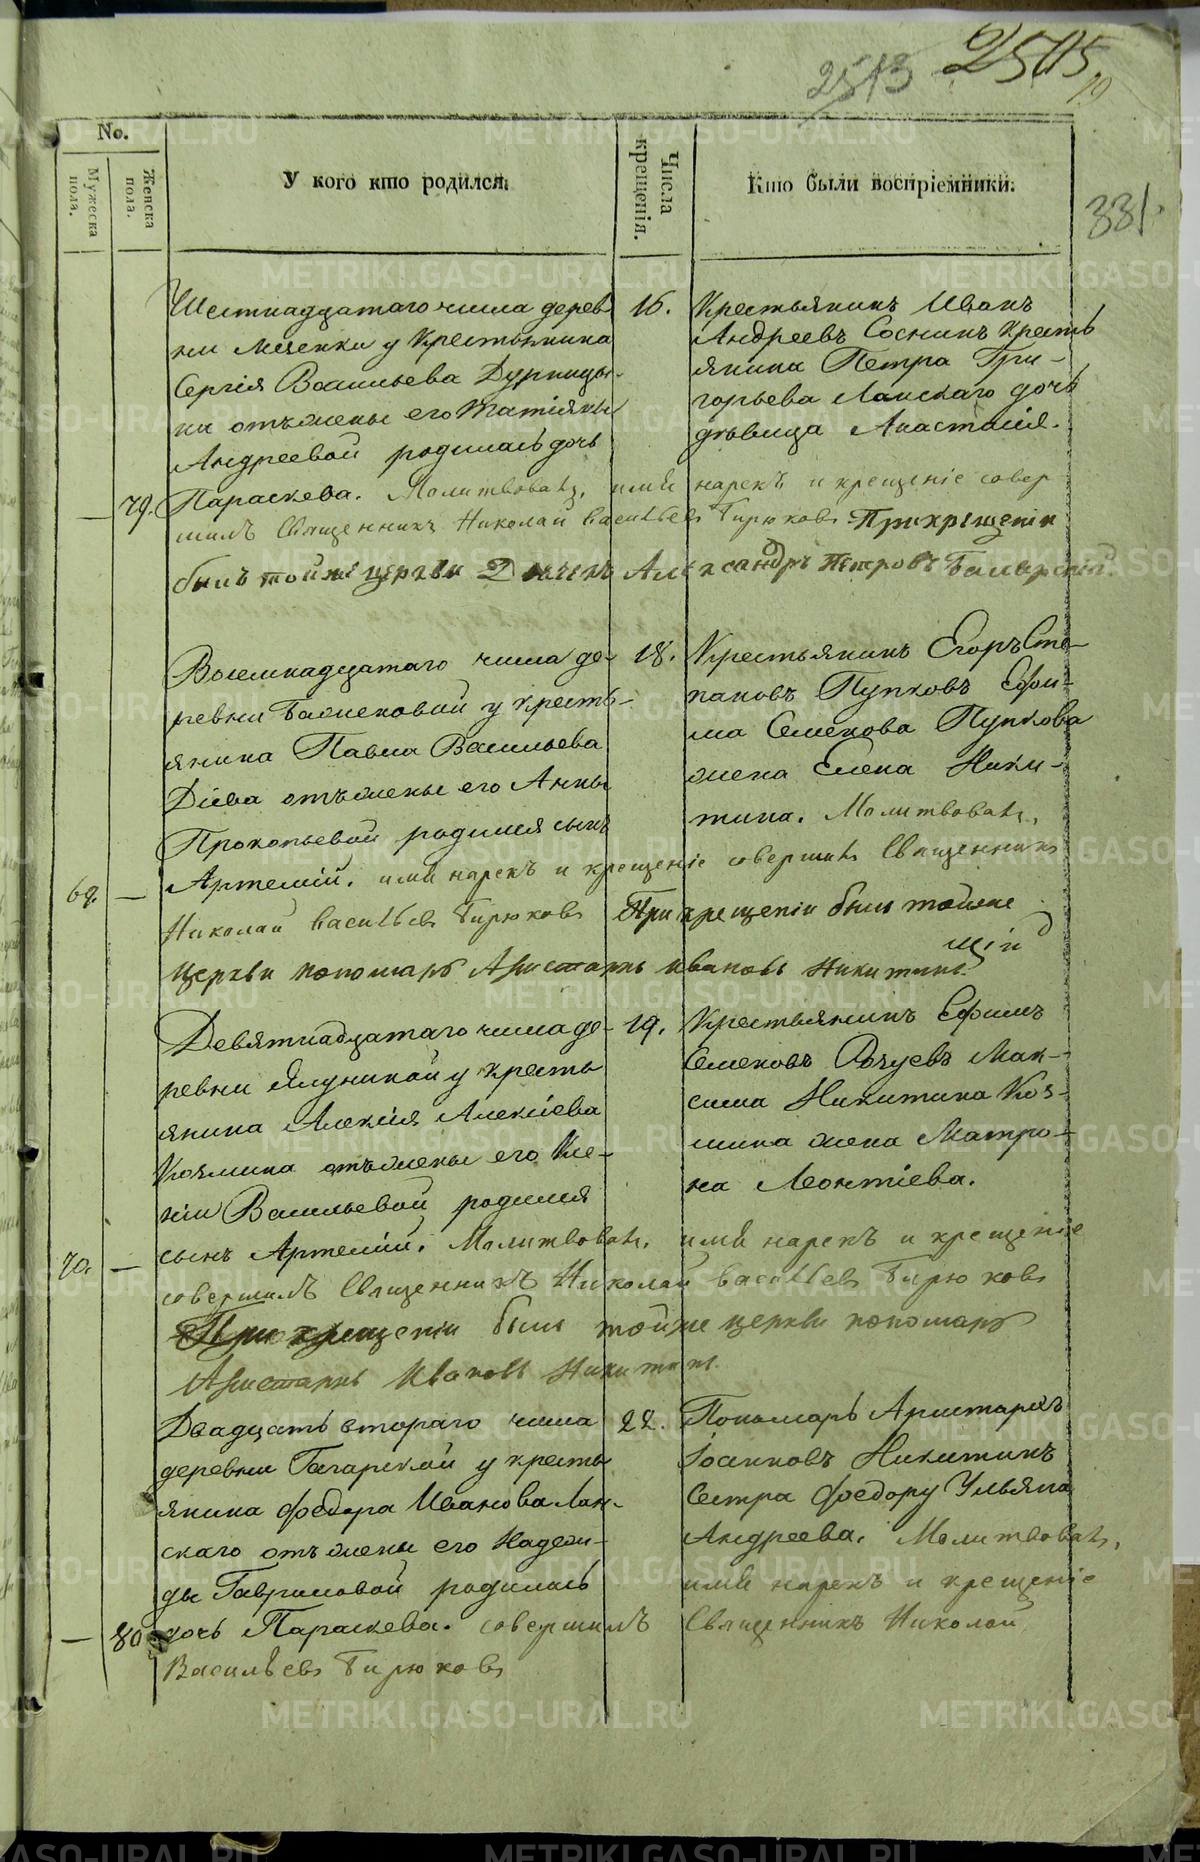 2513 2505.
19
331.
No.
Мужеска пола.
Женска пола.
У кого кто родился.
Числа крещенія.
Кто были воспріемники.
Шестнадцатаго числа дерев
ни Мезенки у крестьянина
Сергія Васильева Дурницы-
на отъ жены его Татіяны
Андреевой родилась дочь
79. Параскева. Молитвовалъ, имя нарекъ и крещеніе совер
шилъ Священникъ Николай Васильевъ Бирюковъ При крещеніи
былъ тойже церкви Дьячекъ Александръ Петровъ
16.
Крестьянинъ Иванъ
Андреевъ Соснинъ Кресть
янина Петра Гри-
горьева Ланскаго дочь
дѣвица Анастасія.
Восемнадцатаго числа де-
ревни у кресть-
янина Павла Васильева
Діева отъ жены его Анны
Прокопьевой родился сынъ
69. — Артемій. имя нарекъ и крещеніе совершилъ Священникъ
Николай Васильевъ Бирюковъ При крещеніи былъ тойже
церкви пономарь Аристархъ Ивановъ Никитинъ.
18.
Крестьянинъ Егоръ Сте-
пановъ Пупковъ Ефи-
ма Семенова Пупкова
жена Елена Ники-
тина. Молитвовалъ,
Девятнадцатаго числа де-
ревни Ялуниной у кресть
янина Алексія Алексіева
Козмина отъ жены его Ксе-
ніи Васильевой родился
70. — сынъ Артемій. Молитвовалъ, имя нарекъ и крещеніе
совершилъ Священникъ Николай Васильевъ Бирюковъ
При крещеніи былъ тойже церкви пономарь
Аристархъ Ивановъ Никитинъ.
19.
Крестьянинъ Ефимъ
Семеновъ Мак-
сима Никитина Коз-
мина жена Матро-
на Леонтіева.
Двадцать втораго числа
деревни Гагарской у кресть
янина Федора Иванова Лан-
скаго отъ жены его Надеж-
ды Гавриловой родилась
— 80 дочь Параскева. совершилъ Священникъ Николай
Васильевъ Бирюковъ
22.
Пономарь Аристархъ
Іоанновъ Никитинъ
Сестра Федору Ульяна
Андреева. Молитвовалъ,
имя нарекъ и крещеніе
METRIKI.GASO-URAL.RU